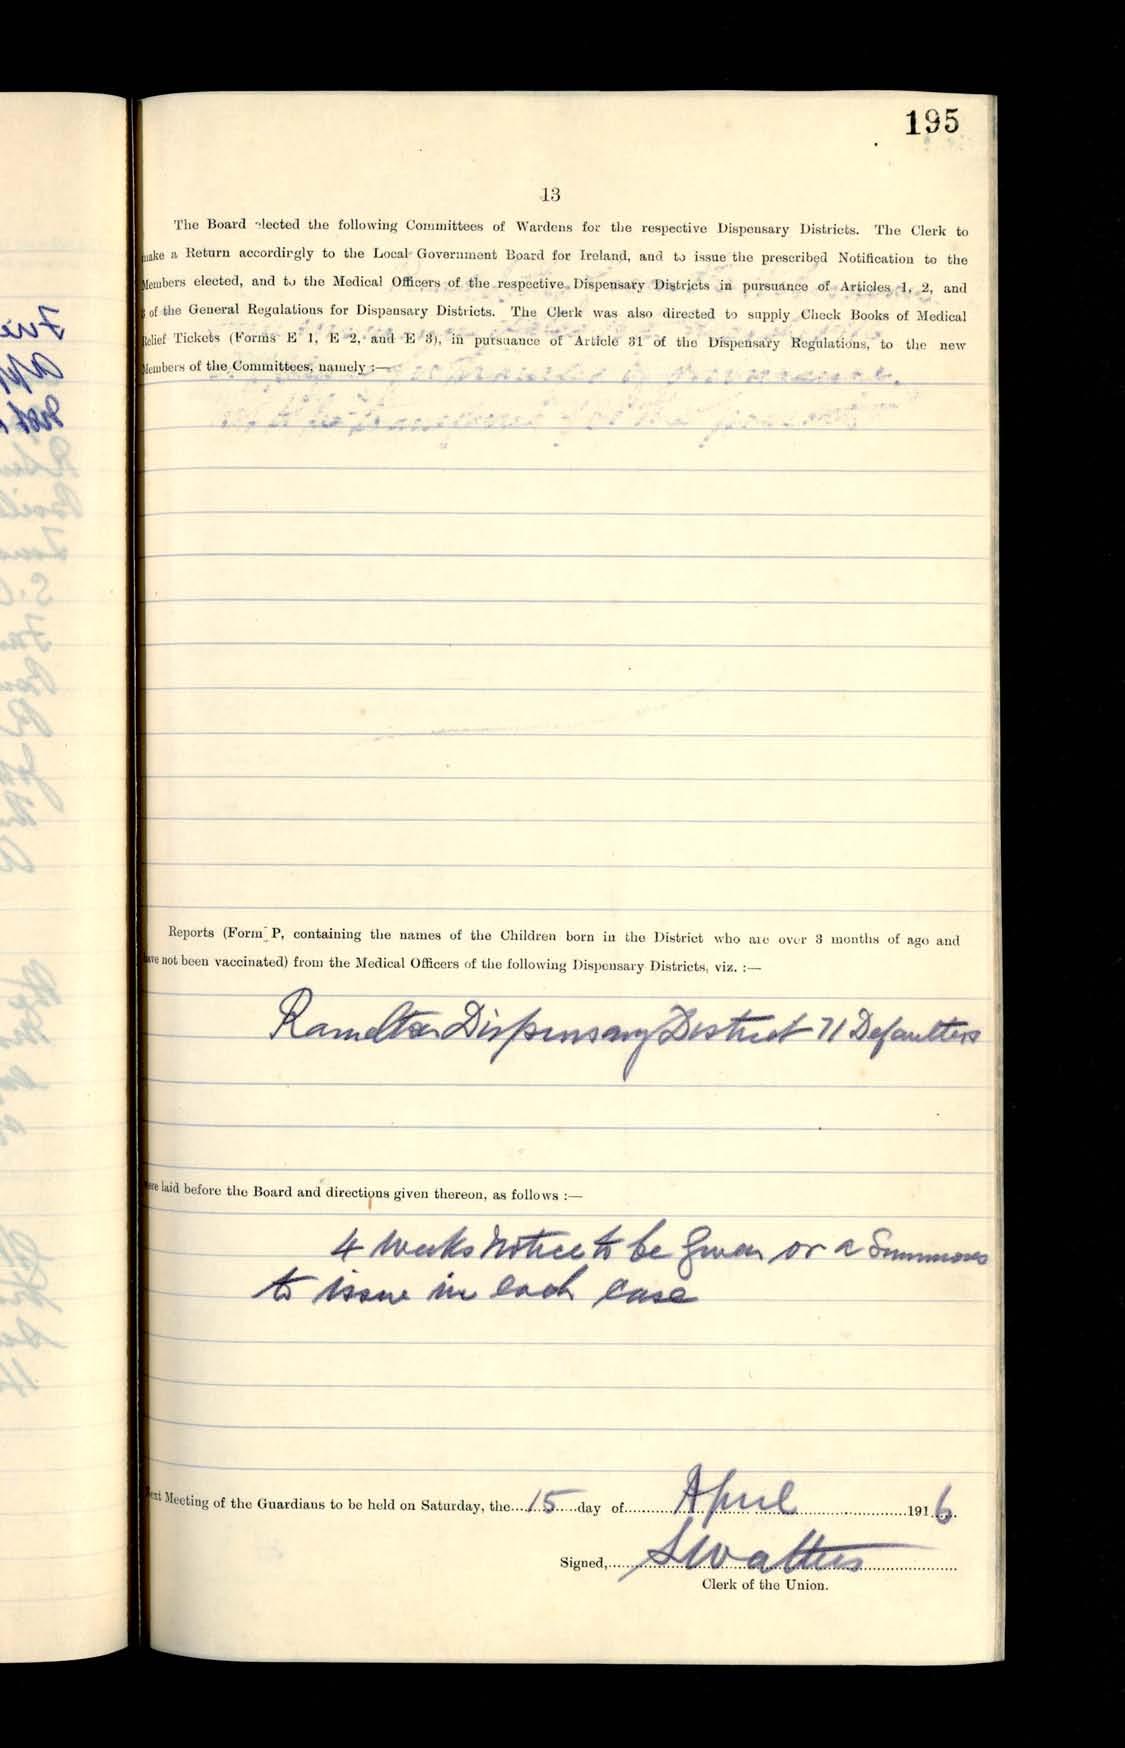 195
13
The Board elected the following Committees of Wardens for the respective Dispensary Districts. The Clerk to
make a Return accordirgly to the Local Government Board for Ireland, and to issue the prescribed Notification to the
Members elected, and to the Medical Officers of the respective Dispensary Districts in pursuance of Articles 1, 2, and
3 of the General Regulations for Dispensary Districts. The Clerk was also directed to supply Check Books of Medical
Relief Tickets (Forms E 1, E 2, and E 3), in pursuance of Article 31 of the Dispensary Regulations, to the new
Members of the Committees, namely :—
Reports (Form P, containing the names of the Children born in the District who are over 3 months of age and
ave not been vaccinated) from the Medical Officers of the following Dispensary Districts, viz. :—
Ramelton Dispensary District 71 Defaulters
ere laid before the Board and directions given thereon, as follows :—
4 weeks notice to be given or a Summons
to issue in each case
ext Meeting of the Guardians to be held on Saturday, the 15 day of April 1916.
Signed, S Watters
Clerk of the Union.